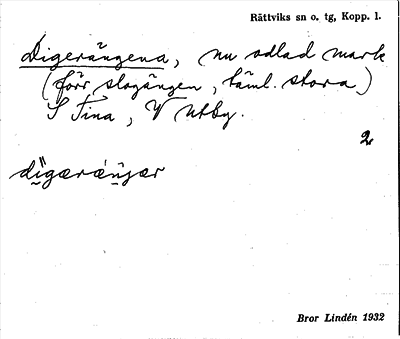 Rättviks sn o. tg, Kopp. l.
Digerängena, nu odlad mark
(förr slogängen, täml. stora)
S Tina, V Utby.
2
Bror Lindén 1932